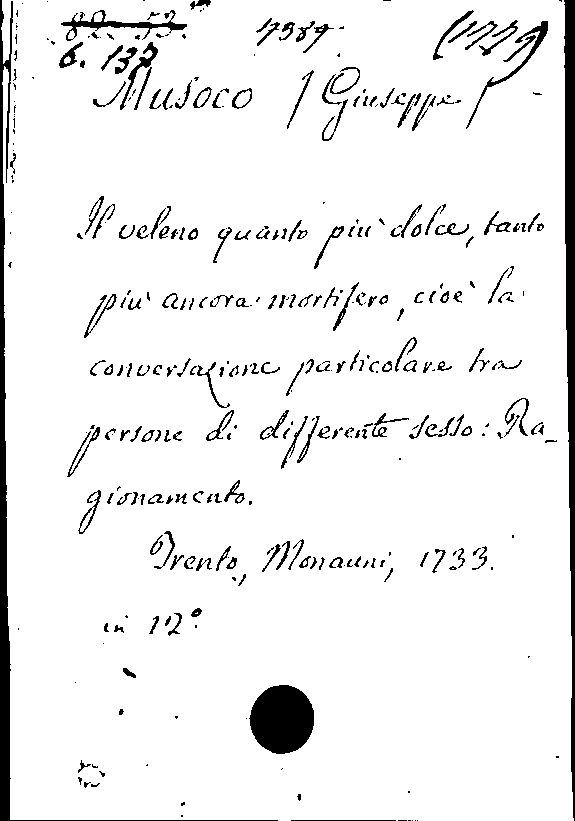 82. 53. 7389 (1229)
6. 137
Musoco / Giuseppe / -
Il veleno quanto più dolce, tanto
più ancora mortifero, cioè la
conversazione particolare tra
persone di differente sesso: Ra_
gionamento.
Trento, Monauni, 1733.
in 12°.